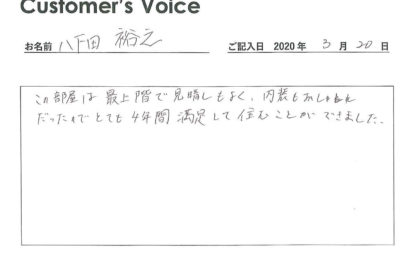 Customer's Voice
お名前 八下田 裕之 ご記入日 2020 年 3 月 20 日
この部屋は最上階で見晴しもよく、内装もおしゃれ
だったのでとても4年間満足して住むことができました。